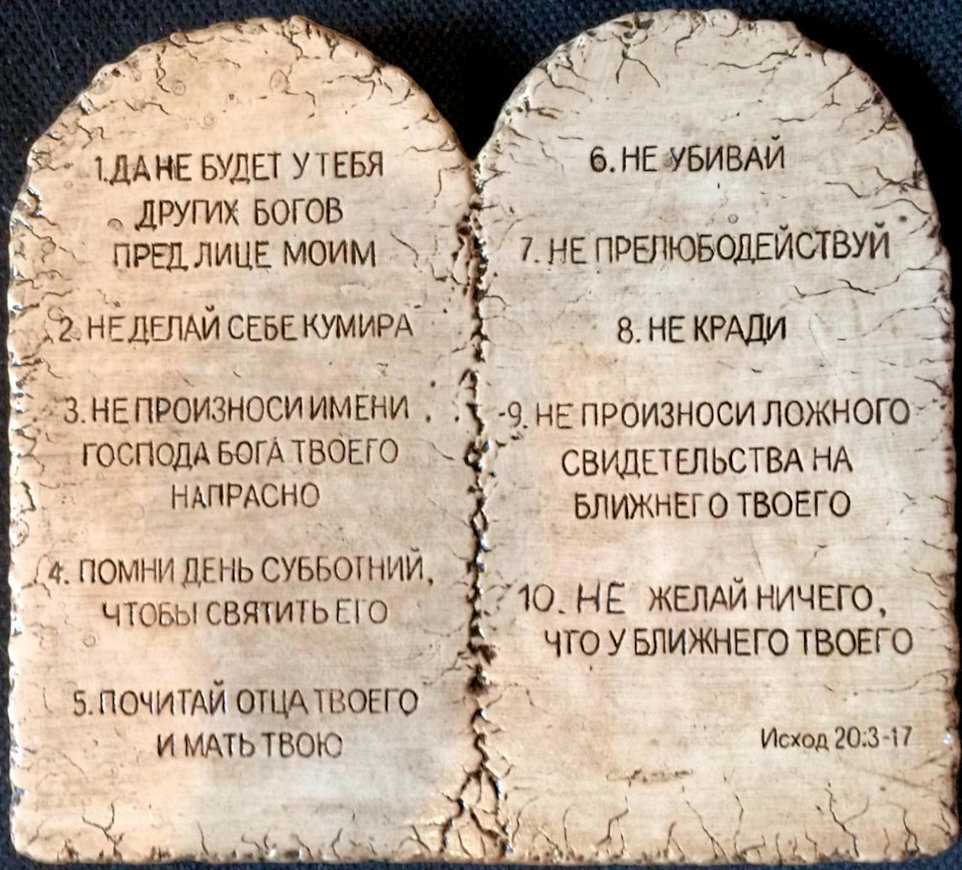 1. ДА НЕ БУДЕТ У ТЕБЯ
ДРУГИХ БОГОВ
ПРЕД ЛИЦЕ МОИМ
2. НЕ ДЕЛАЙ СЕБЕ КУМИРА
3. НЕ ПРОИЗНОСИ ИМЕНИ
ГОСПОДА БОГА ТВОЕГО
НАПРАСНО
4. ПОМНИ ДЕНЬ СУББОТНИЙ,
ЧТОБЫ СВЯТИТЬ ЕГО
5. ПОЧИТАЙ ОТЦА ТВОЕГО
И МАТЬ ТВОЮ
6. НЕ УБИВАЙ
7. НЕ ПРЕЛЮБОДЕЙСТВУЙ
8. НЕ КРАДИ
9. НЕ ПРОИЗНОСИ ЛОЖНОГО
СВИДЕТЕЛЬСТВА НА
БЛИЖНЕГО ТВОЕГО
10. НЕ ЖЕЛАЙ НИЧЕГО,
ЧТО У БЛИЖНЕГО ТВОЕГО
Исход 20:3-17